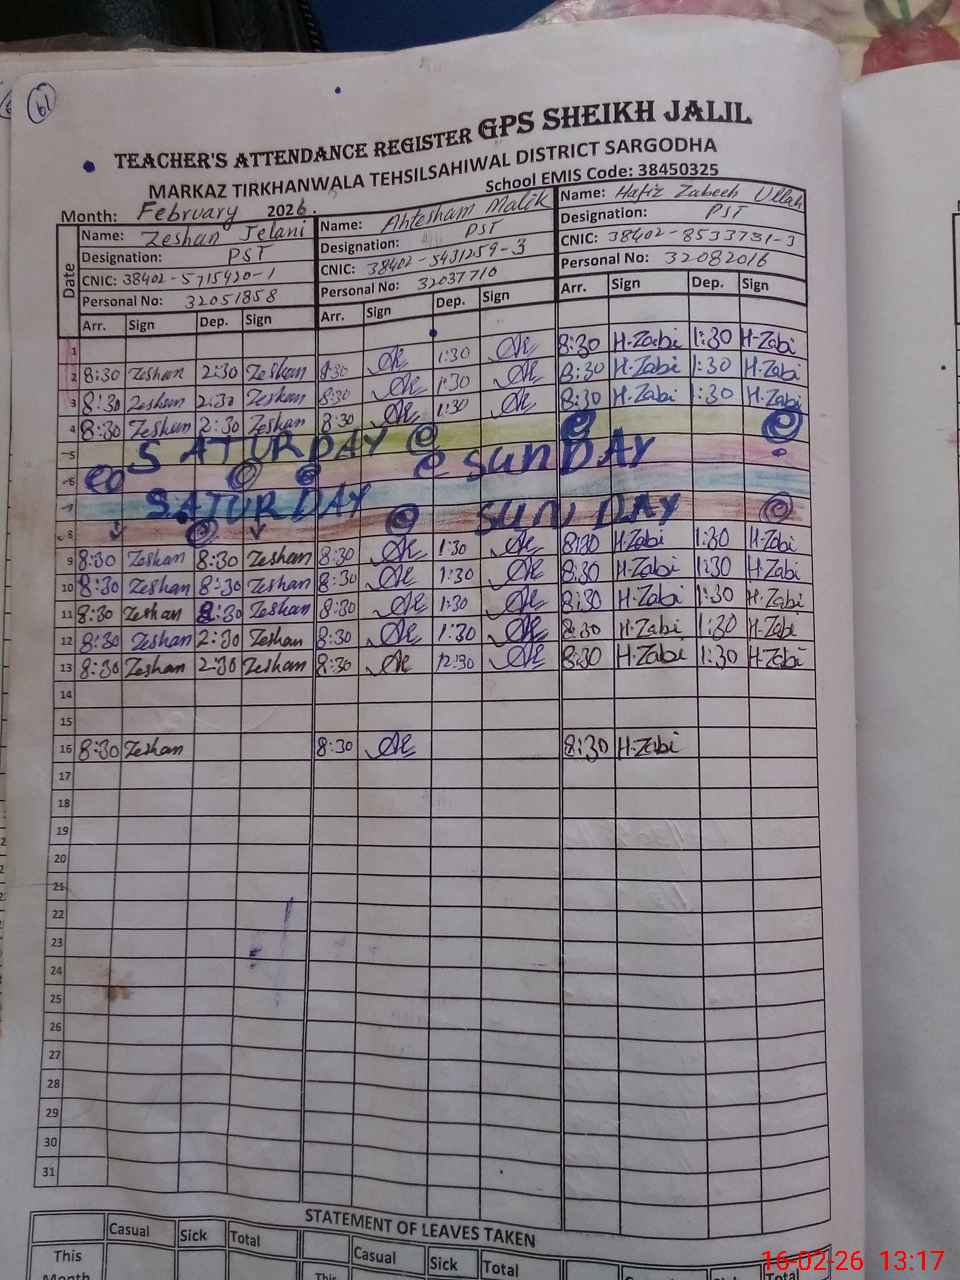 19
TEACHER'S ATTENDANCE REGISTER GPS SHEIKH JALIL
MARKAZ TIRKHANWALA TEHSILSAHIWAL DISTRICT SARGODHA
School EMIS Code: 38450325
Month: February 2026.
Date
Name: Zeshan Jelani
Designation: PST
CNIC: 38402-5715920-1
Personal No: 32051858
Name: Ahtesham Malik
Designation: PST
CNIC: 38402-5431259-3
Personal No: 32037710
Name: Hafiz Zabeeh Ullah
Designation: PST
CNIC: 38402-8533731-3
Personal No: 32082016
Arr. Sign Dep. Sign Arr. Sign Dep. Sign Arr. Sign Dep. Sign
1 1:30 8:30 H.Zabi 1:30 H.Zabi
2 8:30 Zeshan 2:30 Zeshan 8:30 1:30 8:30 H.Zabi 1:30 H.Zabi
3 8:30 Zeshan 2:30 Zeshan 8:30 1:30 8:30 H.Zabi 1:30 H.Zabi
4 8:30 Zeshan 2:30 Zeshan 8:30
5 SATURDAY
6 SUNDAY
7 SATURDAY
8 SUNDAY
9 8:30 Zeshan 8:30 Zeshan 8:30 1:30 8:30 H.Zabi 1:30 H.Zabi
10 8:30 Zeshan 8:30 Zeshan 8:30 1:30 8:30 H.Zabi 1:30 H.Zabi
11 8:30 Zeshan 8:30 Zeshan 8:30 1:30 8:30 H.Zabi 1:30 H.Zabi
12 8:30 Zeshan 2:30 Zeshan 8:30 1:30 8:30 H.Zabi 1:30 H.Zabi
13 8:30 Zeshan 2:30 Zeshan 8:30 12:30 8:30 H.Zabi 1:30 H.Zabi
14
15
16 8:30 Zeshan 8:30 8:30 H.Zabi
17
18
19
20
21
22
23
24
25
26
27
28
29
30
31
STATEMENT OF LEAVES TAKEN
Casual Sick Total Casual Sick Total Casual Sick Total
This Month
This
16-02-26 13:17